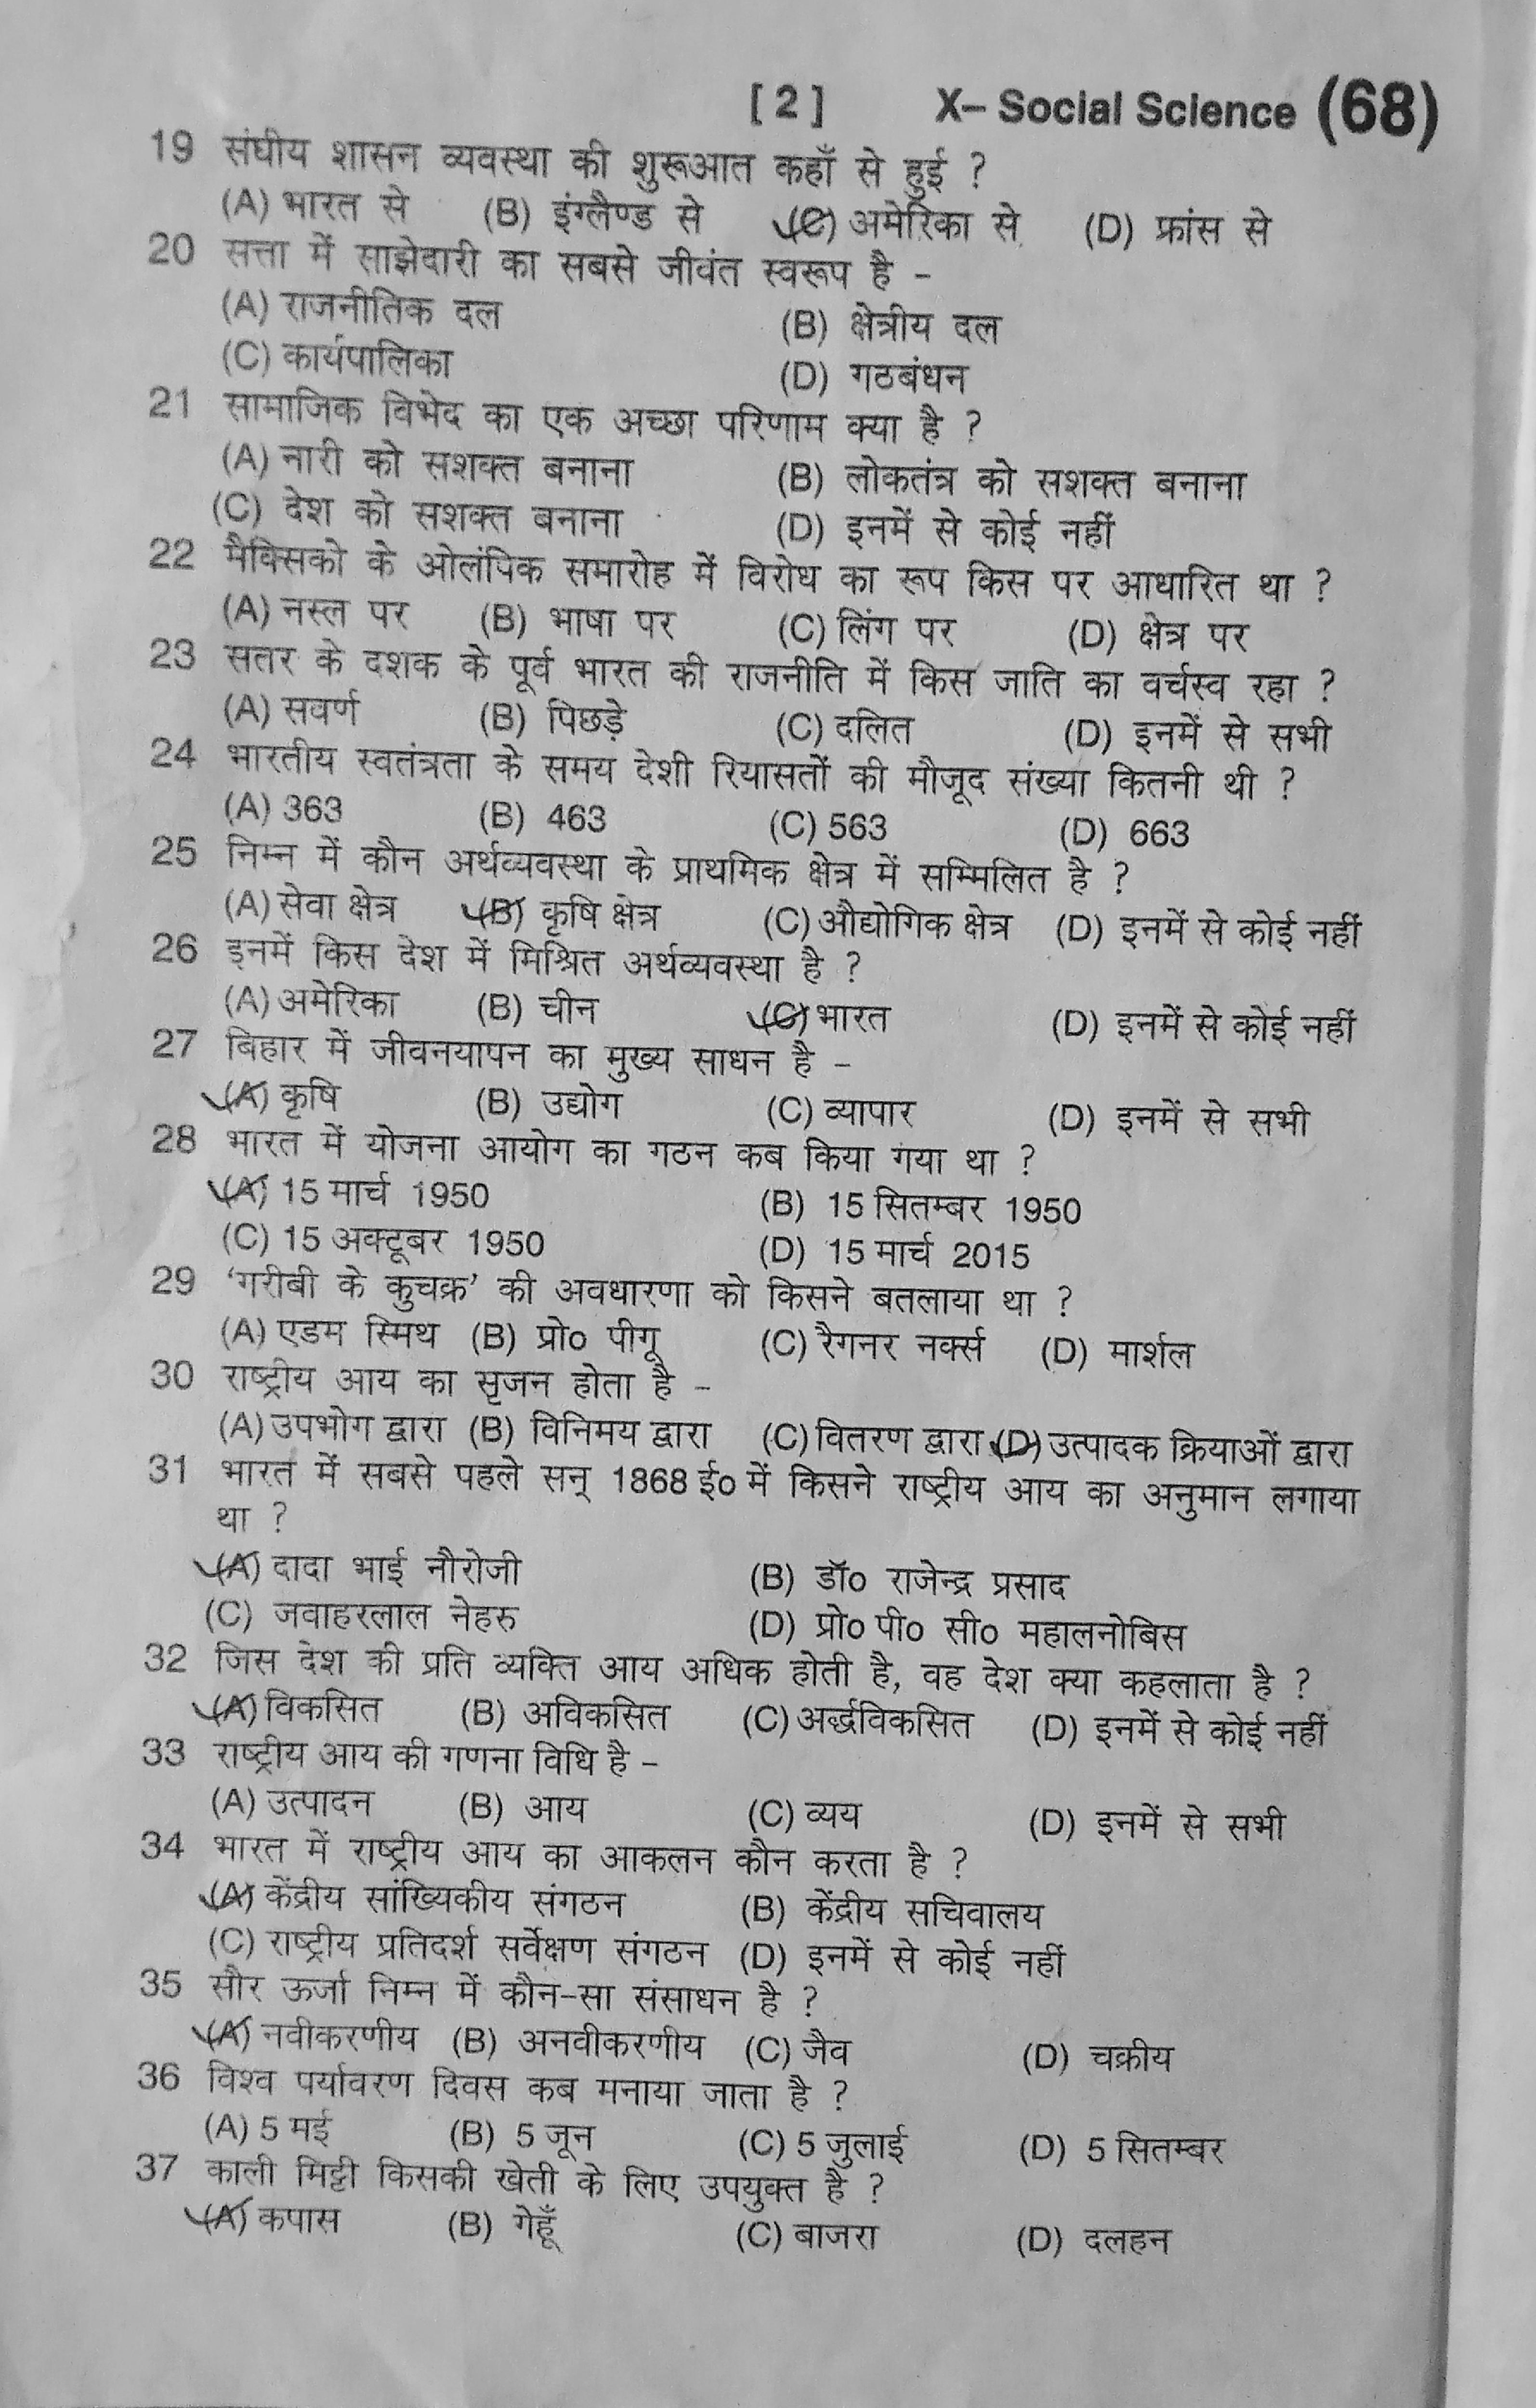 [ 2 ] X– Social Science (68)
19 संघीय शासन व्यवस्था की शुरूआत कहाँ से हुई ?
(A) भारत से (B) इंग्लैण्ड से (C) अमेरिका से (D) फ्रांस से
20 सत्ता में साझेदारी का सबसे जीवंत स्वरूप है –
(A) राजनीतिक दल (B) क्षेत्रीय दल
(C) कार्यपालिका (D) गठबंधन
21 सामाजिक विभेद का एक अच्छा परिणाम क्या है ?
(A) नारी को सशक्त बनाना (B) लोकतंत्र को सशक्त बनाना
(C) देश को सशक्त बनाना (D) इनमें से कोई नहीं
22 मैक्सिको के ओलंपिक समारोह में विरोध का रूप किस पर आधारित था ?
(A) नस्ल पर (B) भाषा पर (C) लिंग पर (D) क्षेत्र पर
23 सतर के दशक के पूर्व भारत की राजनीति में किस जाति का वर्चस्व रहा ?
(A) सवर्ण (B) पिछड़े (C) दलित (D) इनमें से सभी
24 भारतीय स्वतंत्रता के समय देशी रियासतों की मौजूद संख्या कितनी थी ?
(A) 363 (B) 463 (C) 563 (D) 663
25 निम्न में कौन अर्थव्यवस्था के प्राथमिक क्षेत्र में सम्मिलित है ?
(A) सेवा क्षेत्र (B) कृषि क्षेत्र (C) औद्योगिक क्षेत्र (D) इनमें से कोई नहीं
26 इनमें किस देश में मिश्रित अर्थव्यवस्था है ?
(A) अमेरिका (B) चीन (C) भारत (D) इनमें से कोई नहीं
27 बिहार में जीवनयापन का मुख्य साधन है –
(A) कृषि (B) उद्योग (C) व्यापार (D) इनमें से सभी
28 भारत में योजना आयोग का गठन कब किया गया था ?
(A) 15 मार्च 1950 (B) 15 सितम्बर 1950
(C) 15 अक्टूबर 1950 (D) 15 मार्च 2015
29 ‘गरीबी के कुचक्र’ की अवधारणा को किसने बतलाया था ?
(A) एडम स्मिथ (B) प्रो० पीगू (C) रैगनर नर्क्स (D) मार्शल
30 राष्ट्रीय आय का सृजन होता है –
(A) उपभोग द्वारा (B) विनिमय द्वारा (C) वितरण द्वारा (D) उत्पादक क्रियाओं द्वारा
31 भारत में सबसे पहले सन् 1868 ई० में किसने राष्ट्रीय आय का अनुमान लगाया
था ?
(A) दादा भाई नौरोजी (B) डॉ० राजेन्द्र प्रसाद
(C) जवाहरलाल नेहरु (D) प्रो० पी० सी० महालनोबिस
32 जिस देश की प्रति व्यक्ति आय अधिक होती है, वह देश क्या कहलाता है ?
(A) विकसित (B) अविकसित (C) अर्द्धविकसित (D) इनमें से कोई नहीं
33 राष्ट्रीय आय की गणना विधि है –
(A) उत्पादन (B) आय (C) व्यय (D) इनमें से सभी
34 भारत में राष्ट्रीय आय का आकलन कौन करता है ?
(A) केंद्रीय सांख्यिकीय संगठन (B) केंद्रीय सचिवालय
(C) राष्ट्रीय प्रतिदर्श सर्वेक्षण संगठन (D) इनमें से कोई नहीं
35 सौर ऊर्जा निम्न में कौन-सा संसाधन है ?
(A) नवीकरणीय (B) अनवीकरणीय (C) जैव (D) चक्रीय
36 विश्व पर्यावरण दिवस कब मनाया जाता है ?
(A) 5 मई (B) 5 जून (C) 5 जुलाई (D) 5 सितम्बर
37 काली मिट्टी किसकी खेती के लिए उपयुक्त है ?
(A) कपास (B) गेहूँ (C) बाजरा (D) दलहन